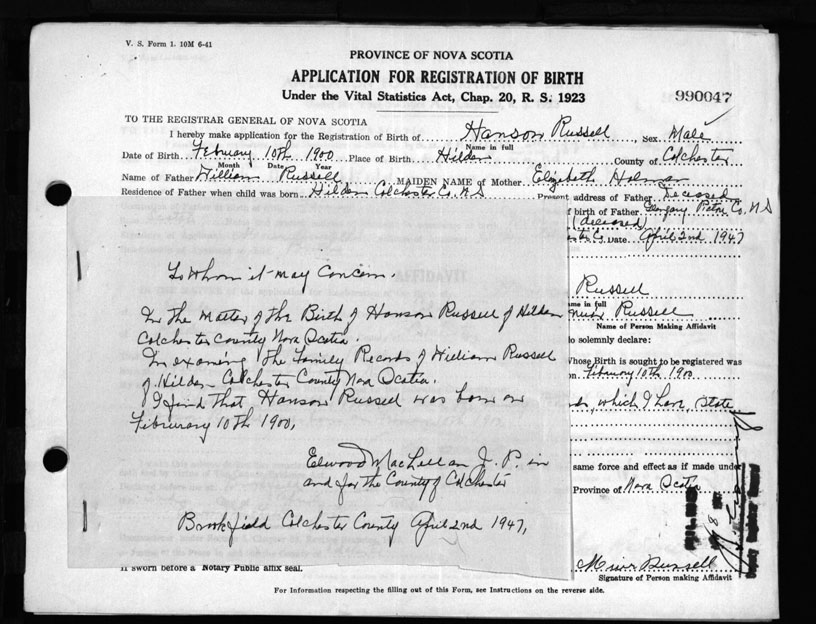 V. S. Form 1. 10M 6-41
PROVINCE OF NOVA SCOTIA
APPLICATION FOR REGISTRATION OF BIRTH
Under the Vital Statistics Act, Chap. 20, R. S. 1923
990047
TO THE REGISTRAR GENERAL OF NOVA SCOTIA
I hereby make application for the Registration of Birth of Hanson Russell, Sex Male
Name in full
Date of Birth February 10th 1900 Place of Birth Hilden County of Colchester
Month Date Year
Name of Father William Russell MAIDEN NAME of Mother Elizabeth Holman
Residence of Father when child was born Hilden Colchester Co. N.S Present address of Father Deceased
f birth of Father Pictou Co. N.S
(deceased)
Date April 2nd 1947
To Whom it may Concern.
In the Matter of the Birth of Hanson Russell of Hilden
Colchester County Nova Scotia.
In examing the Family Records of William Russell
of Hilden Colchester County Nova Scotia.
I find that Hanson Russell was born on
Februrary 10th 1900,
Elwood MacLellan J. P. in
and for the County of Colchester
Brookfield Colchester County April 2nd 1947,
Russell
me in full
Russell
Name of Person Making Affidavit
do solemnly declare:
Whose Birth is sought to be registered was
on February 10th 1900
which I have, state
same force and effect as if made under
Province of Nova Scotia
Russell
If sworn before a Notary Public affix seal.
Signature of Person making Affidavit
For Information respecting the filling out of this Form, see Instructions on the reverse side.